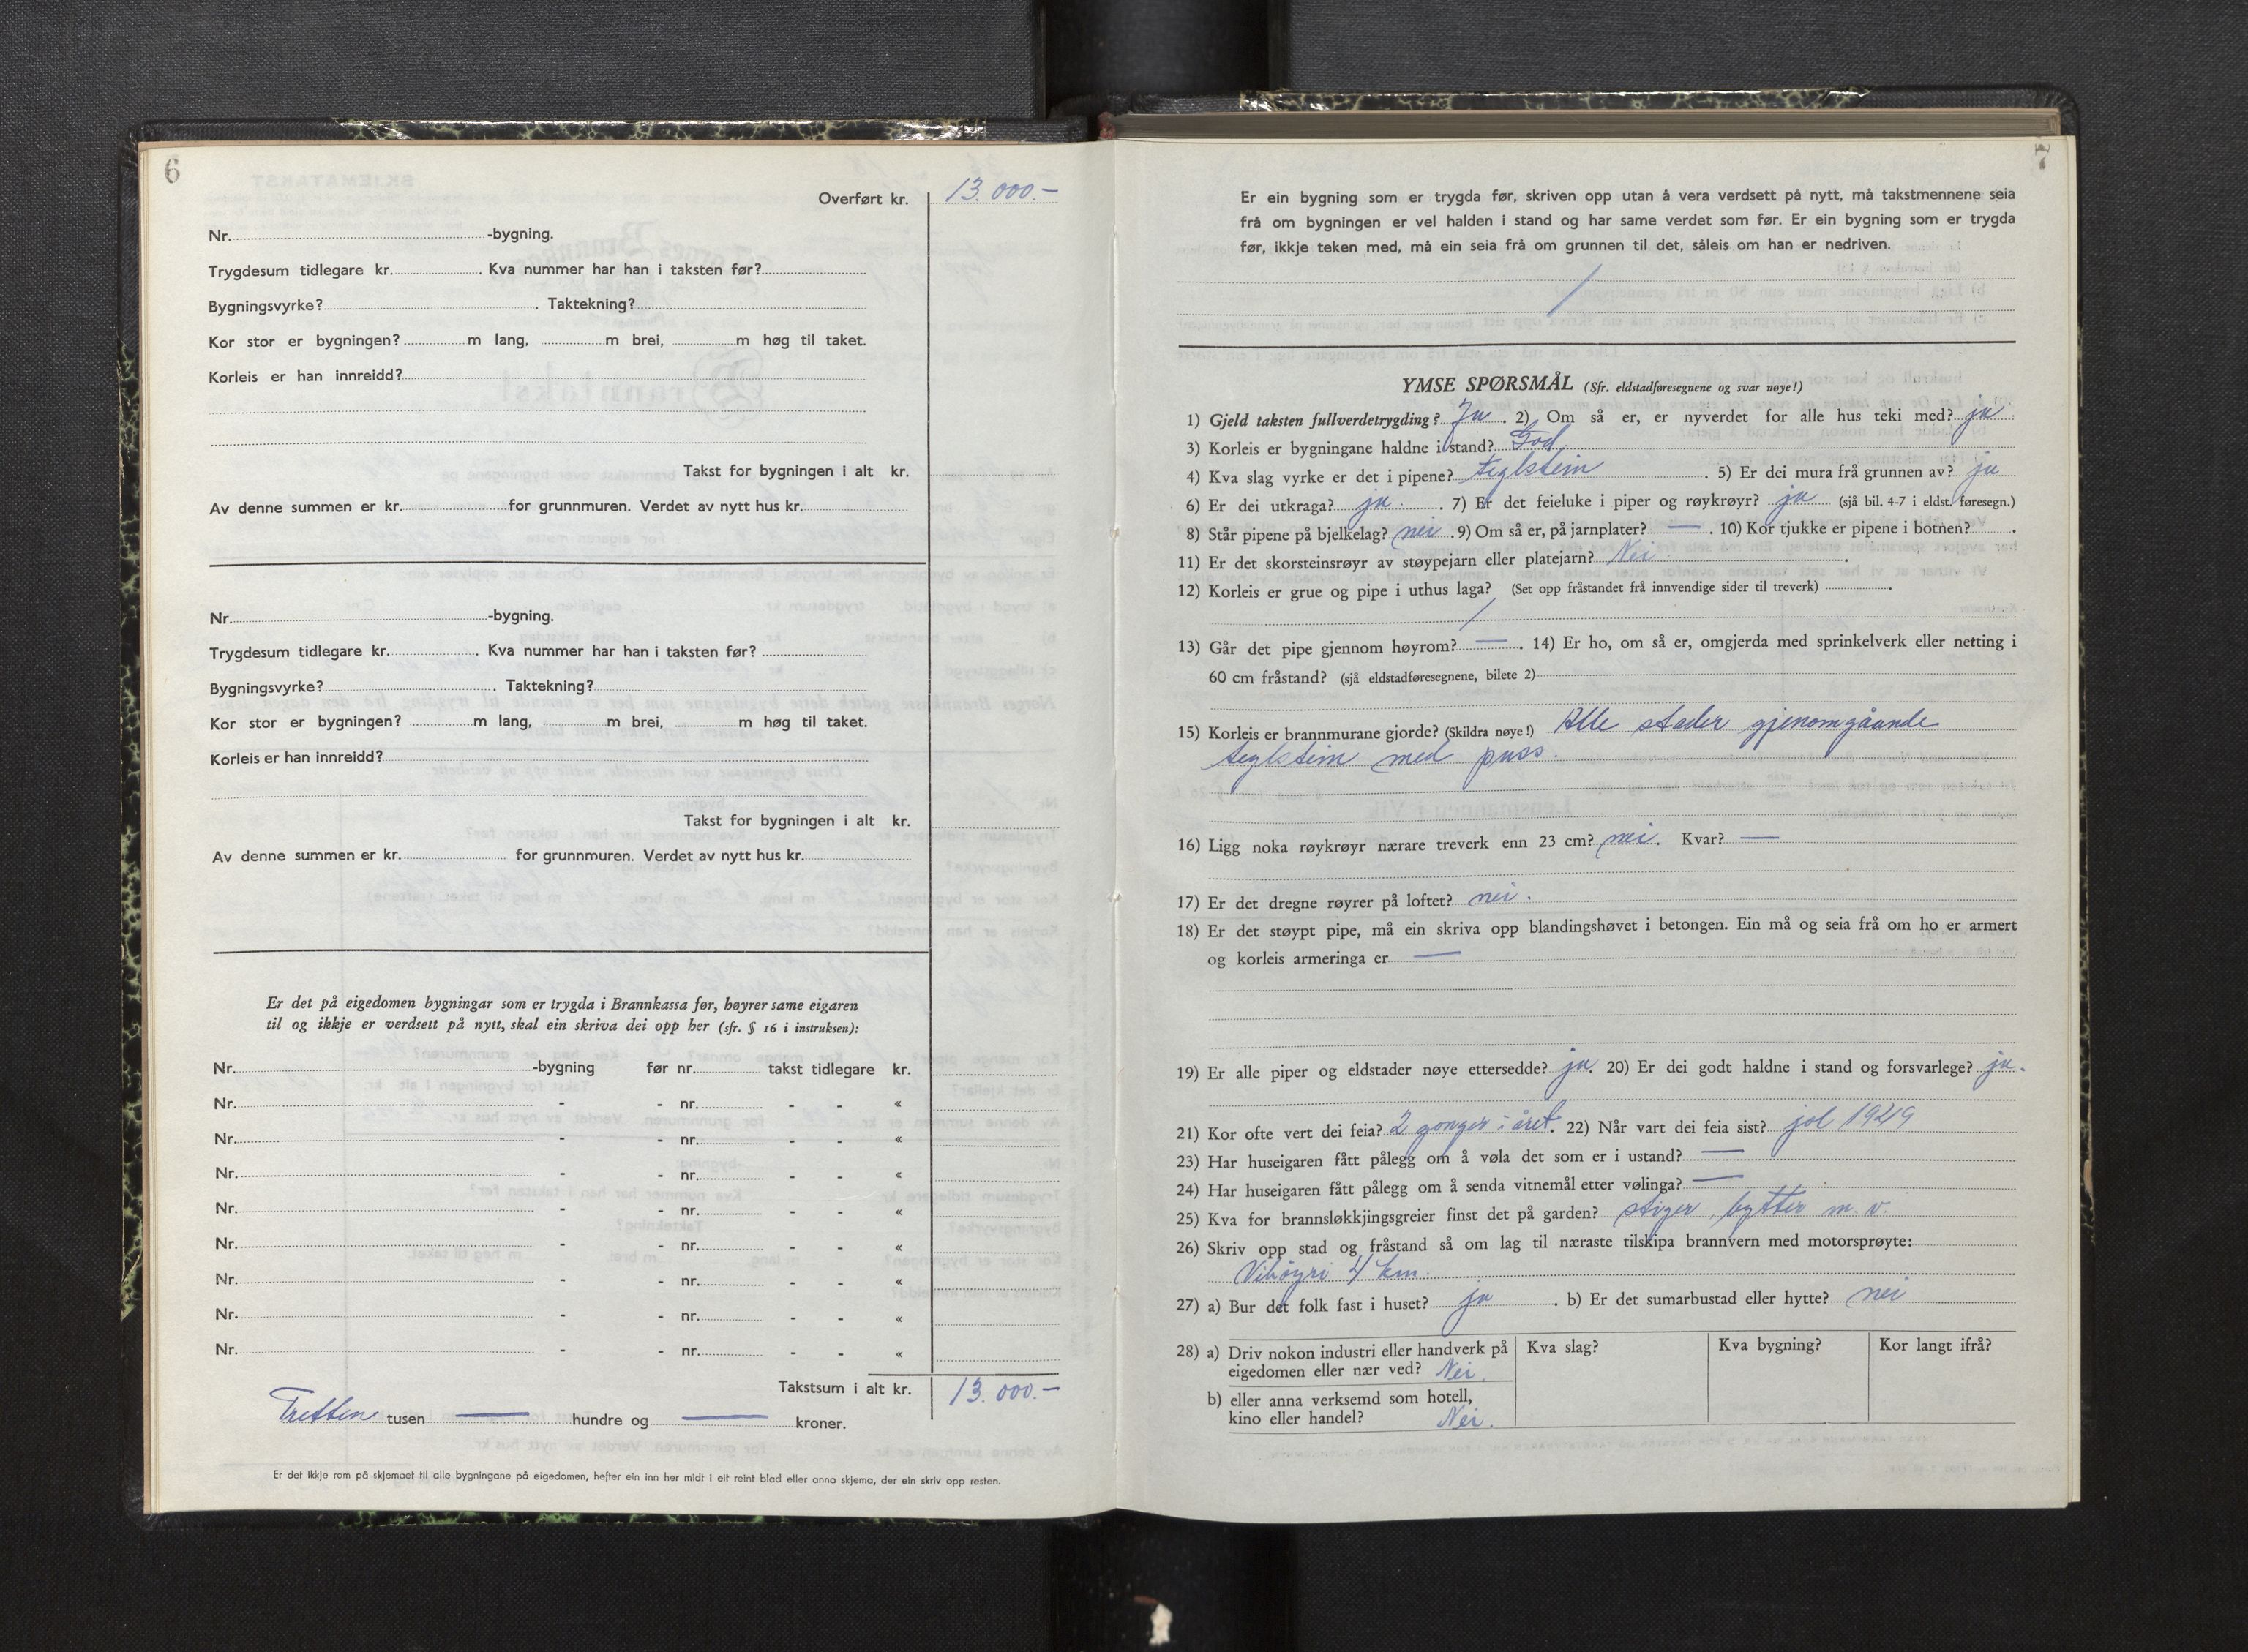 6
Overført kr. 13.000.-
Nr. -bygning.
Trygdesum tidlegare kr. . Kva nummer har han i taksten før?
Bygningsvyrke? . Taktekning?
Kor stor er bygningen? m lang, m brei, m høg til taket.
Korleis er han innreidd?
Takst for bygningen i alt kr.
Av denne summen er kr. for grunnmuren. Verdet av nytt hus kr.
Nr. -bygning.
Trygdesum tidlegare kr. . Kva nummer har han i taksten før?
Bygningsvyrke? . Taktekning?
Kor stor er bygningen? m lang, m brei, m høg til taket.
Korleis er han innreidd?
Takst for bygningen i alt kr.
Av denne summen er kr. for grunnmuren. Verdet av nytt hus kr.
Er det på eigedomen bygningar som er trygda i Brannkassa før, høyrer same eigaren
til og ikkje er verdsett på nytt, skal ein skriva dei opp her (sfr. § 16 i instruksen):
Nr. -bygning før nr. takst tidlegare kr.
Nr. - - nr. - - «
Nr. - - nr. - - «
Nr. - - nr. - - «
Nr. - - nr. - - «
Nr. - - nr. - - «
Nr. - - nr. - - «
Nr. - - nr. - - «
Nr. - - nr. - - «
Takstsum i alt kr. 13.000.-
Tretten tusen — hundre og — kroner.
Er det ikkje rom på skjemaet til alle bygningane på eigedomen, hefter ein inn her midt i eit reint blad eller anna skjema, der ein skriv opp resten.
7
Er ein bygning som er trygda før, skriven opp utan å vera verdsett på nytt, må takstmennene seia
frå om bygningen er vel halden i stand og har same verdet som før. Er ein bygning som er trygda
før, ikkje teken med, må ein seia frå om grunnen til det, såleis om han er nedriven.
/
YMSE SPØRSMÅL (Sfr. eldstadføresegnene og svar nøye!)
1) Gjeld taksten fullverdetrygding? Ja . 2) Om så er, er nyverdet for alle hus teki med? ja
3) Korleis er bygningane haldne i stand? God
4) Kva slag vyrke er det i pipene? teglstein . 5) Er dei mura frå grunnen av? ja
6) Er dei utkraga? ja . 7) Er det feieluke i piper og røykrøyr? ja (sjå bil. 4-7 i eldst. føresegn.)
8) Står pipene på bjelkelag? nei . 9) Om så er, på jarnplater? — . 10) Kor tjukke er pipene i botnen? .
11) Er det skorsteinsrøyr av støypejarn eller platejarn? Nei .
12) Korleis er grue og pipe i uthus laga? (Set opp fråstandet frå innvendige sider til treverk) .
/
13) Går det pipe gjennom høyrom? — . 14) Er ho, om så er, omgjerda med sprinkelverk eller netting i
60 cm fråstand? (sjå eldstadføresegnene, bilete 2)
15) Korleis er brannmurane gjorde? (Skildra nøye!) Alle stader gjenomgåande
teglstein med puss.
16) Ligg noka røykrøyr nærare treverk enn 23 cm? nei. Kvar? —
17) Er det dregne røyrer på loftet? nei.
18) Er det støypt pipe, må ein skriva opp blandingshøvet i betongen. Ein må og seia frå om ho er armert
og korleis armeringa er —
19) Er alle piper og eldstader nøye ettersedde? ja. 20) Er dei godt haldne i stand og forsvarlege? ja.
21) Kor ofte vert dei feia? 2 gonger i året. 22) Når vart dei feia sist? jol 1949
23) Har huseigaren fått pålegg om å vøla det som er i ustand? —
24) Har huseigaren fått pålegg om å senda vitnemål etter vølinga? —
25) Kva for brannsløkkjingsgreier finst det på garden? stiger, bytter m. v.
26) Skriv opp stad og fråstand så om lag til næraste tilskipa brannvern med motorsprøyte:
Vikøyri 4 km.
27) a) Bur det folk fast i huset? ja . b) Er det sumarbustad eller hytte? nei
28) a) Driv nokon industri eller handverk på Kva slag? Kva bygning? Kor langt ifrå?
eigedomen eller nær ved? Nei.
b) eller anna verksemd som hotell,
kino eller handel? Nei.